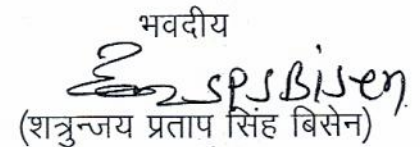 भवदीय
SPSBisen
(शत्रुन्जय प्रताप सिंह बिसेन)